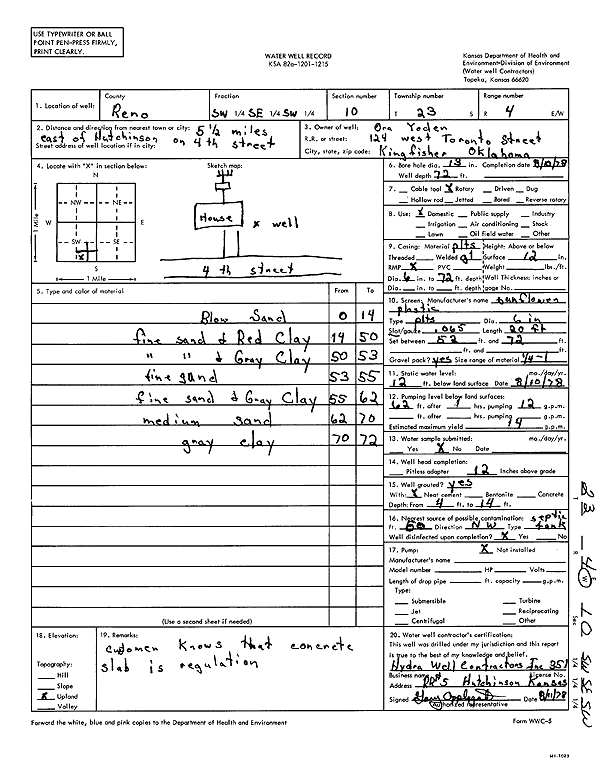 USE TYPEWRITER OR BALL
POINT PEN-PRESS FIRMLY,
PRINT CLEARLY.
WATER WELL RECORD
KSA 82a-1201-1215
Kansas Department of Health and
Environment-Division of Environment
(Water well Contractors)
Topeka, Kansas 66620
1. Location of well: County Reno Fraction SW 1/4 SE 1/4 SW 1/4 Section number 10 Township number T 23 S Range number R 4 E/W
2. Distance and direction from nearest town or city: 5 1/2 miles
east of Hutchinson on 4th street
Street address of well location if in city:
3. Owner of well: Ora Yoden
R.R. or street: 124 west Toronto Street
City, state, zip code: Kingfisher Oklahoma
4. Locate with "X" in section below:
N
NW NE
W E
SW SE
X
S
1 Mile
1 Mile
Sketch map:
House
x well
4 th street
6. Bore hole dia. 13 in. Completion date 8/10/78
Well depth 72 ft.
7. Cable tool X Rotary Driven Dug
Hollow rod Jetted Bored Reverse rotary
8. Use: X Domestic Public supply Industry
Irrigation Air conditioning Stock
Lawn Oil field water Other
9. Casing: Material plts Height: Above or below
Threaded Welded gl Surface 12 in.
RMP X PVC Weight lbs./ft.
Dia. 6 in. to 72 ft. depth Wall Thickness: inches or
Dia. in. to ft. depth gage No.
5. Type and color of material From To
Blow Sand 0 14
fine sand & Red Clay 14 50
" " & Gray Clay 50 53
fine sand 53 55
fine sand & Gray Clay 55 62
medium sand 62 70
gray clay 70 72
(Use a second sheet if needed)
10. Screen: Manufacturer's name sunflower
plastic
Type plts Dia. 6 in
Slot/gauze .065 Length 20 ft
Set between 52 ft. and 72 ft.
ft. and ft.
Gravel pack? yes Size range of material 1/4-1
11. Static water level: mo./day/yr.
12 ft. below land surface Date 8/10/78
12. Pumping level below land surfaces:
62 ft. after 1 hrs. pumping 12 g.p.m.
ft. after hrs. pumping g.p.m.
Estimated maximum yield 14 g.p.m.
13. Water sample submitted: mo./day/yr.
Yes X No Date
14. Well head completion:
Pitless adapter 12 Inches above grade
15. Well grouted? yes
With: X Neat cement Bentonite Concrete
Depth: From 4 ft. to 14 ft.
16. Nearest source of possible contamination: septic
ft. 50 Direction NW Type tank
Well disinfected upon completion? X Yes No
17. Pump: X Not installed
Manufacturer's name
Model number HP Volts
Length of drop pipe ft. capacity g.p.m.
Type:
Submersible Turbine
Jet Reciprocating
Centrifugal Other
18. Elevation:
Topography:
Hill
Slope
X Upland
Valley
19. Remarks:
customer knows that concrete
slab is regulation
20. Water well contractor's certification:
This well was drilled under my jurisdiction and this report
is true to the best of my knowledge and belief.
Hydra Well Contractors Inc 351
Business name License No.
Address RR#5 Hutchinson Kansas
Signed Date 8/11/78
Authorized representative
T 23 R 4 W Sec 10 SW 1/4 SE 1/4 SW 1/4
Forward the white, blue and pink copies to the Department of Health and Environment
Form WWC-5